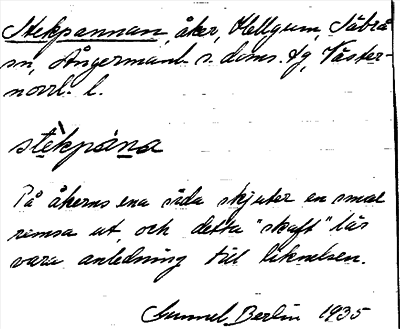 Stekpannan, åker, Hellgum, Säbrå
sn, Ångermanl. s. doms. tg, Väster-
norrl. l.
stèkpána
På åkerns ena sida skjuter en smal
remsa ut, och detta "skaft" lär
vara anledning till liknelsen.
Gunnel Berlin 1935